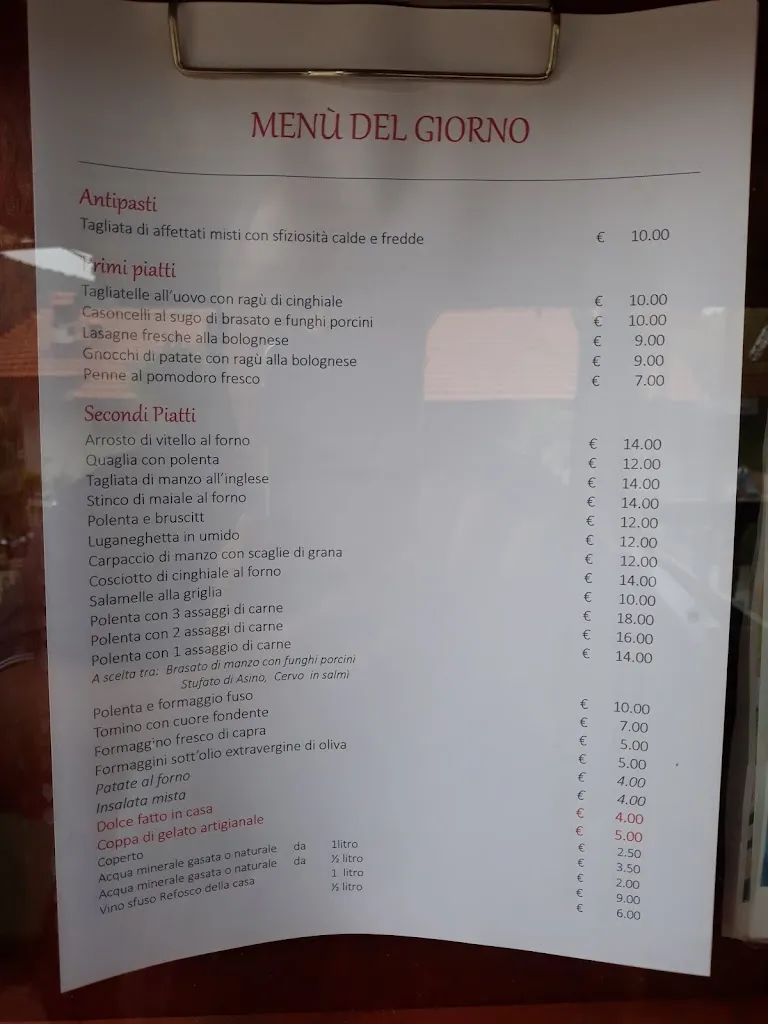 MENÙ DEL GIORNO
Antipasti
Tagliata di affettati misti con sfiziosità calde e fredde € 10.00
Primi piatti
Tagliatelle all'uovo con ragù di cinghiale € 10.00
Casoncelli al sugo di brasato e funghi porcini € 10.00
Lasagne fresche alla bolognese € 9.00
Gnocchi di patate con ragù alla bolognese € 9.00
Penne al pomodoro fresco € 7.00
Secondi Piatti
Arrosto di vitello al forno € 14.00
Quaglia con polenta € 12.00
Tagliata di manzo all'inglese € 14.00
Stinco di maiale al forno € 14.00
Polenta e bruscitt € 12.00
Luganeghetta in umido € 12.00
Carpaccio di manzo con scaglie di grana € 12.00
Cosciotto di cinghiale al forno € 14.00
Salamelle alla griglia € 10.00
Polenta con 3 assaggi di carne € 18.00
Polenta con 2 assaggi di carne € 16.00
Polenta con 1 assaggio di carne € 14.00
A scelta tra: Brasato di manzo con funghi porcini
Stufato di Asino, Cervo in salmì
Polenta e formaggio fuso € 10.00
Tomino con cuore fondente € 7.00
Formagg'no fresco di capra € 5.00
Formaggini sott'olio extravergine di oliva € 5.00
Patate al forno € 4.00
Insalata mista € 4.00
Dolce fatto in casa € 4.00
Coppa di gelato artigianale € 5.00
Coperto € 2.50
Acqua minerale gasata o naturale da 1litro € 3.50
Acqua minerale gasata o naturale da ½ litro € 2.00
Vino sfuso Refosco della casa 1 litro € 9.00
½ litro € 6.00